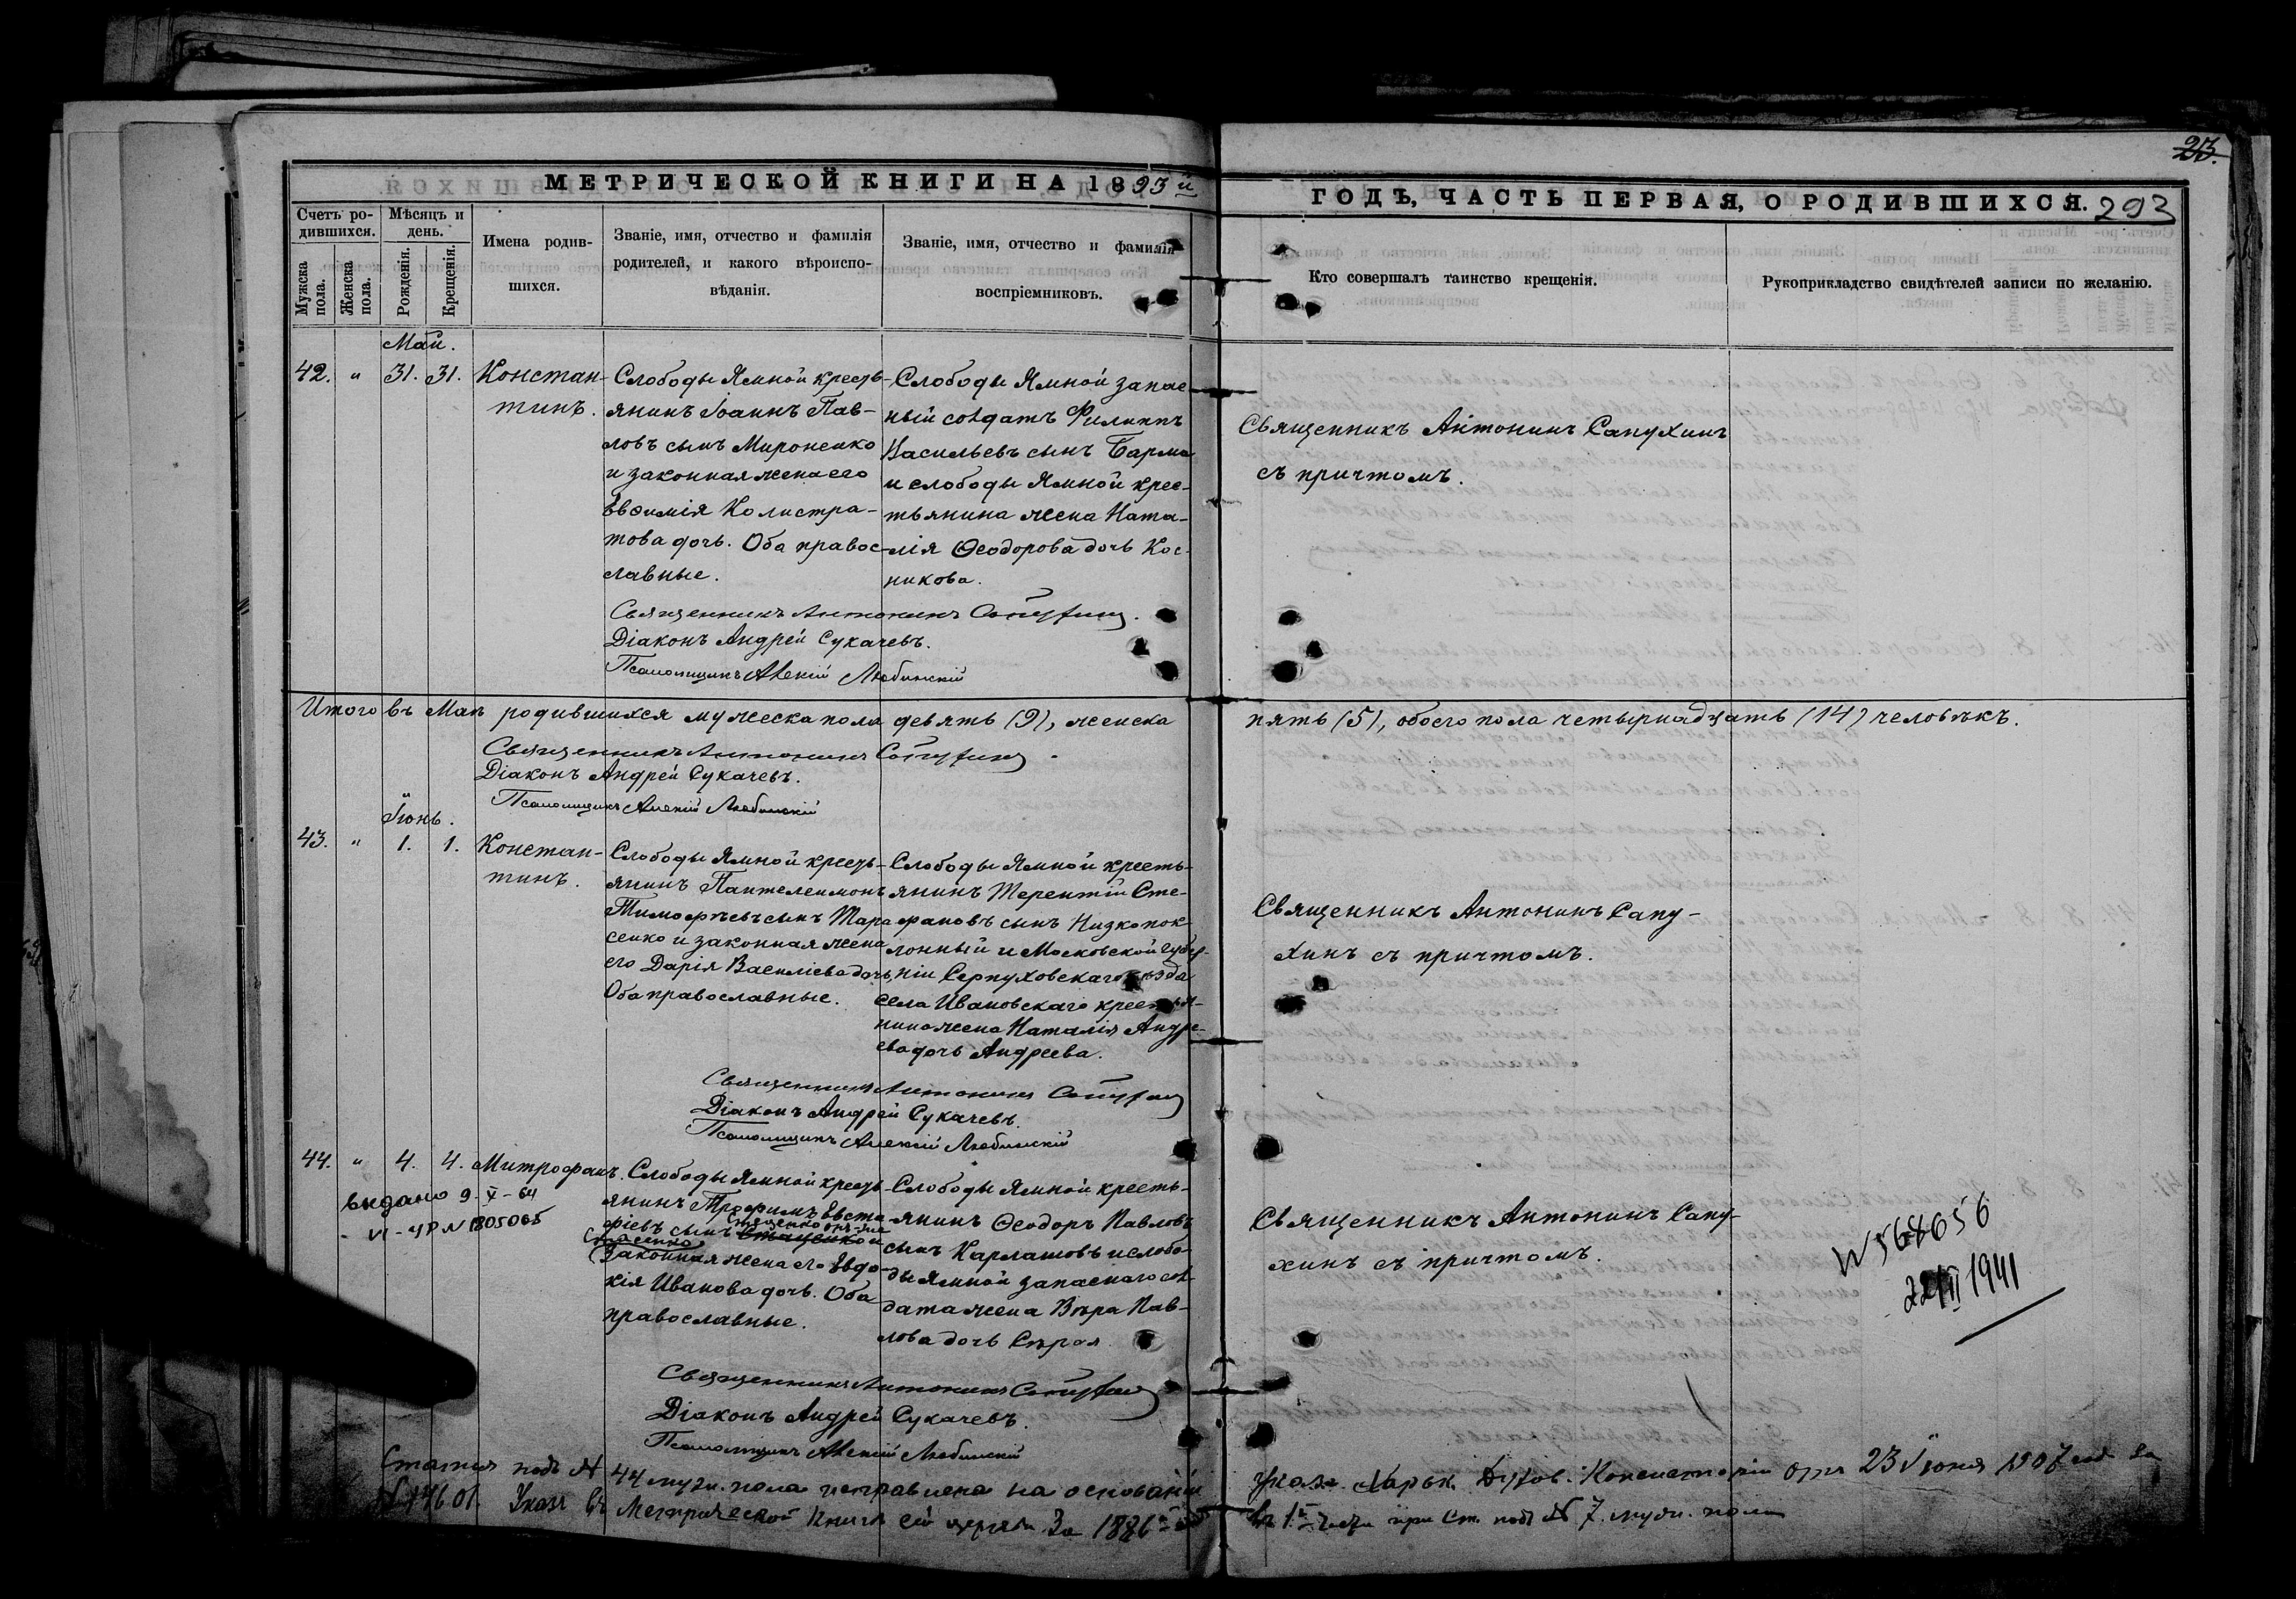 23.
МЕТРИЧЕСКОЙ КНИГИ НА 1893й
ГОДЪ, ЧАСТЬ ПЕРВАЯ, О РОДИВШИХСЯ. 293
Счетъ ро-
дившихся.
Мужска
пола.
Женска
пола.
Мѣсяцъ и
день.
Рожденія.
Крещенія.
Имена родив-
шихся.
Званіе, имя, отчество и фамилія
родителей, и какого вѣроиспо-
вѣданія.
Званіе, имя, отчество и фамилія
воспріемниковъ.
Кто совершалъ таинство крещенія.
Рукоприкладство свидѣтелей записи по желанію.
Май.
42. " 31. 31.
Констан-
тинъ.
Слободы Ямной кресть-
янинъ Іоаннъ Пав-
ловъ сынъ Мироненко
и законная жена его
Евѳимія Калистра-
това дочь. Оба правос-
лавные.
Слободы Ямной запас
ный солдатъ Филиппъ
Васильевъ сынъ Барма
и слободы Ямной крес-
тьянина жена Ната-
лія Ѳеодорова дочь Кос-
никова.
Священникъ Антонинъ Сапухинъ
съ причтомъ.
Священникъ Антонинъ Сапухинъ.
Діаконъ Андрей Сукачевъ.
Псаломщикъ Алексій Любинскій
Итого въ Маѣ родившихся мужеска пола девять (9), женска
пять (5), обоего пола четырнадцать (14) человѣкъ.
Священникъ Антонинъ Сапухинъ
Діаконъ Андрей Сукачевъ.
Псаломщикъ Алексій Любинскій
Іюнь.
43. " 1. 1.
Констан-
тинъ.
Слободы Ямной кресть-
янинъ Пантелеимонъ
Тимоѳѣевъ сынъ Тара
сенко и законная жена
его Дарія Василіева дочь,
Оба православные.
Слободы Ямной кресть-
янинъ Терентій Сте-
фановъ сынъ Низкопок
лонный и Московской губер-
ніи Серпуховскаго уѣзда
села Ивановскаго крестья-
нина жена Наталія Андре-
ева дочь Андреева.
Священникъ Антонинъ Сапу-
хинъ съ причтомъ.
Священникъ Антонинъ Сапухинъ
Діаконъ Андрей Сукачевъ.
Псаломщикъ Алексій Любинскій
44. " 4. 4. Митрофанъ.
выдано 9-X-64
VI-УР N 1305065
Слободы Ямной кресть-
янинъ Трофимъ Евста
фіевъ сынъ Стаценко и
законная жена его Евдо-
кія Иванова дочь. Оба
православные.
Слободы Ямной кресть-
янинъ Ѳеодоръ Павловъ
сынъ Карлашовъ и слобо-
ды Ямной запаснаго сол
дата жена Вѣра Пав-
лова дочь Сѣрая.
Священникъ Антонинъ Сапу-
хинъ съ причтомъ.
N 568656
22/II 1941
Священникъ Антонинъ Сапухинъ
Діаконъ Андрей Сукачевъ.
Псаломщикъ Алексій Любинскій
Статья подъ N 44 муж. пола исправлена на основаніи указа Харьк. Духов. Консисторіи отъ 23 Іюня 1907 года за
N 14601. Указъ въ Метрической книгѣ сей церкви за 1886 й въ 1й части при ст. подъ N 7. муж. пола